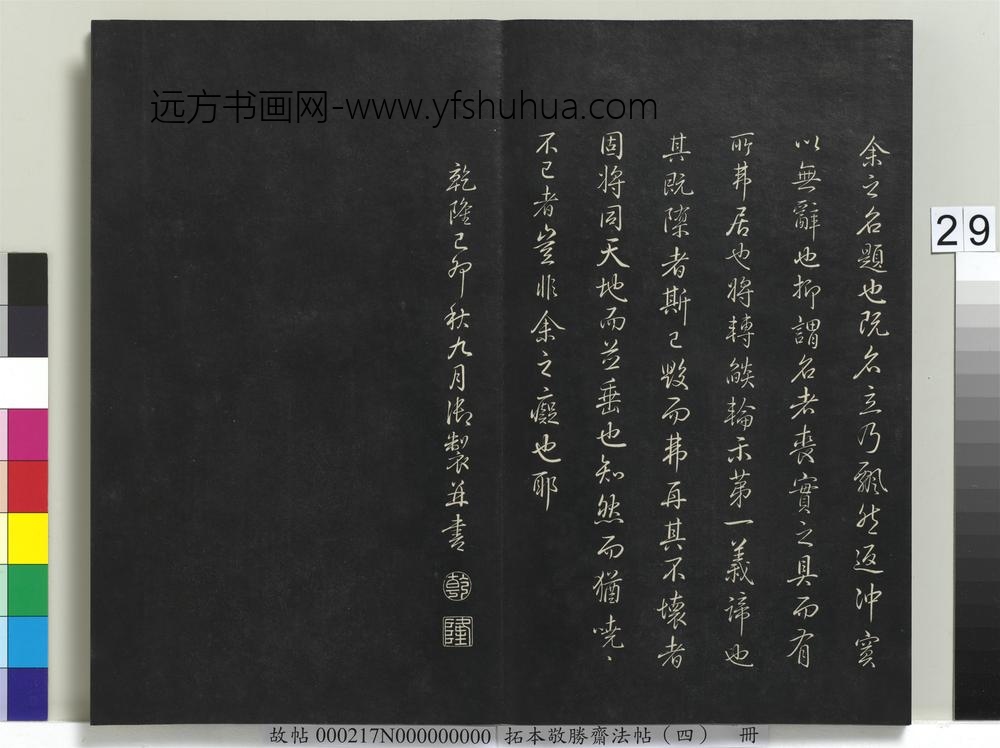 远方书画网-www.yfshuhua.com
余之名題也既名立乃飄然返冲寞
以無辭也抑謂名者喪實之具而有
所弗居也将轉燄輪示第一義諦也
其既隳者斯已毀而弗再其不壞者
固将同天地而並垂也知然而猶嘵〻
不已者豈非余之癡也耶
乾隆己卯秋九月御製并書
乾
隆
29
故帖 000217N000000000 拓本敬勝齋法帖（四） 冊